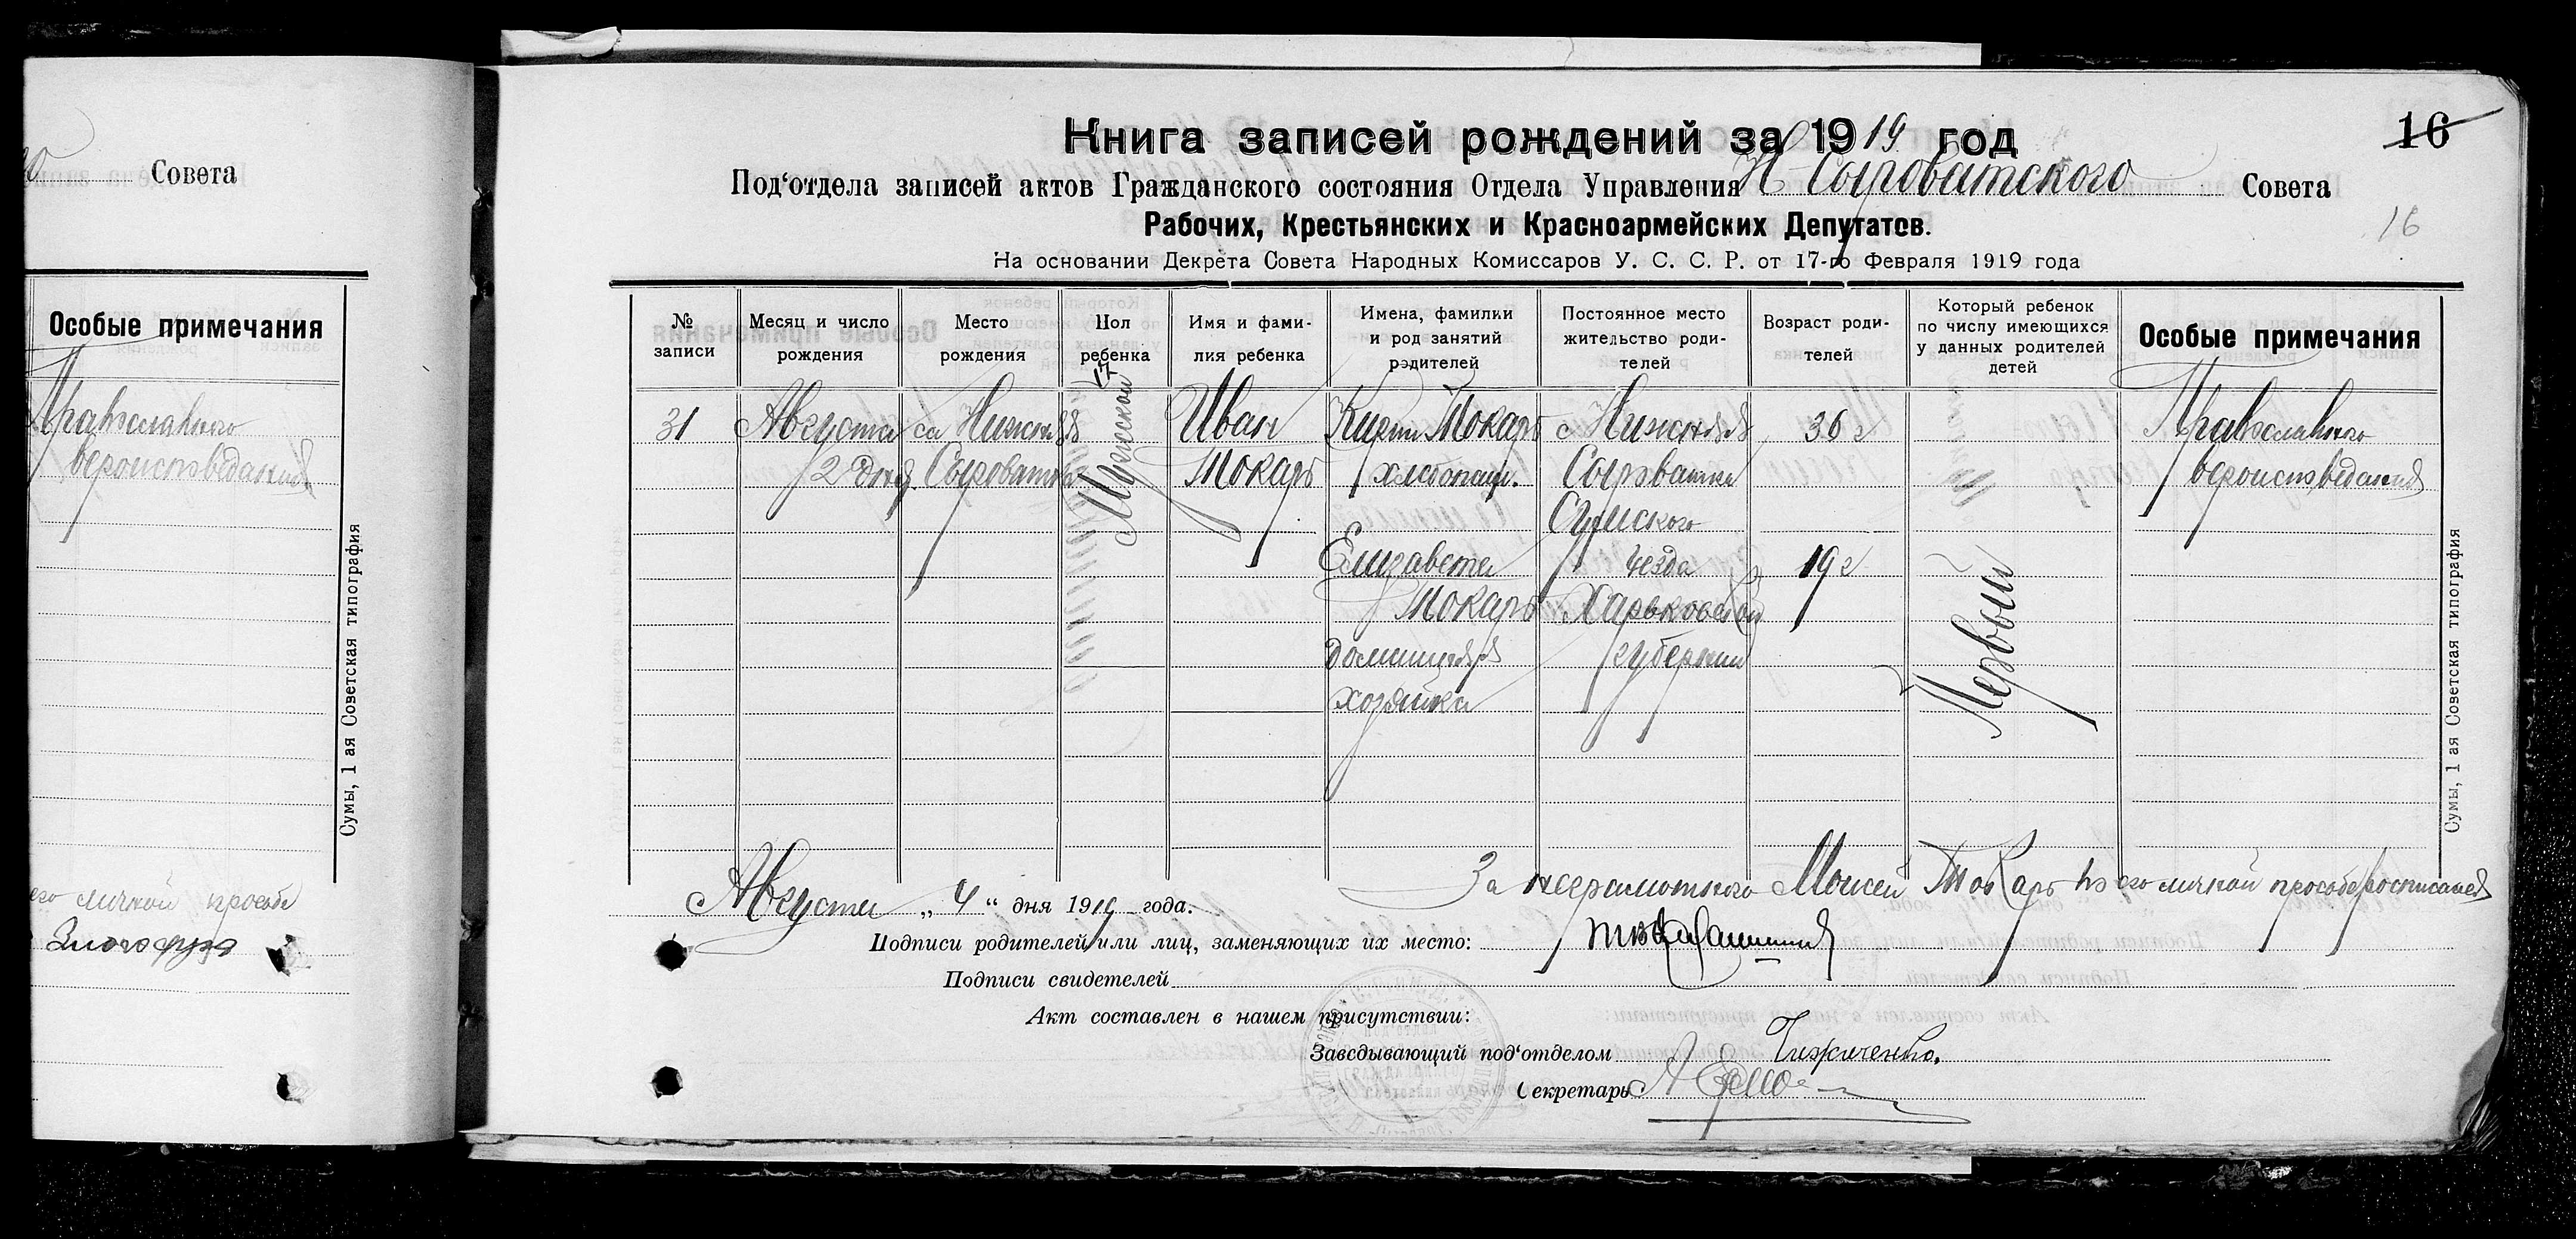 Совета
Особые примечания
Православного
вероисповедания
Сумы, 1 ая Советская типография
его личной прозьбе
16
Книга записей рождений за 1919 год
Под‘отдела записей актов Гражданского состояния Отдела Управления Н Сыроватского Совета
16
Рабочих, Крестьянских и Красноармейских Депутатов.
На основании Декрета Совета Народных Комиссаров У. С. С. Р. от 17-го Февраля 1919 года
№ записи
Месяц и число рождения
Место рождения
Пол ребенка
Имя и фами-лия ребенка
Имена, фамилки и род занятий родителей
Постоянное место жительство роди-телей
Возраст роди-телей
Который ребенок по числу имеющихся у данных родителей детей
Особые примечания
31
Августа
2 дня
са Нижняя
Сыроватка
17
Мужской
Иван
Токарь
Токарь
хлебопаш.
Елизавета
Токарь
домашняя
хозяйка
с Нижняя
Сыроватка
Сумского
уезда
Харьковской
губернии
36 г
19 г
Первый
Православного
вероисповедания
Сумы, 1 ая Советская типография
Августа „ 4 “ дня 1919 года.
За неграмотного Моисей Токарь по его личной прозьбе росписался
Подписи родителей или лиц, заменяющих их место:
Подписи свидетелей
Акт составлен в нашем присутствии:
Заведывающий под‘отделом
Секретарь